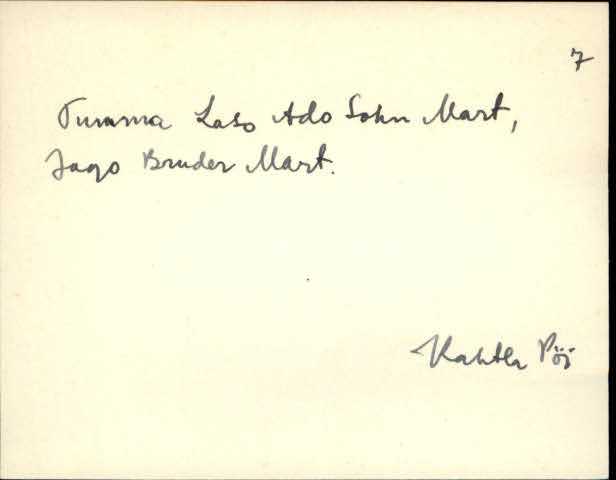 7
Tumma Laso Ado Sohn Mart,
Jago Bruder Mart.
Kahtla Pöi